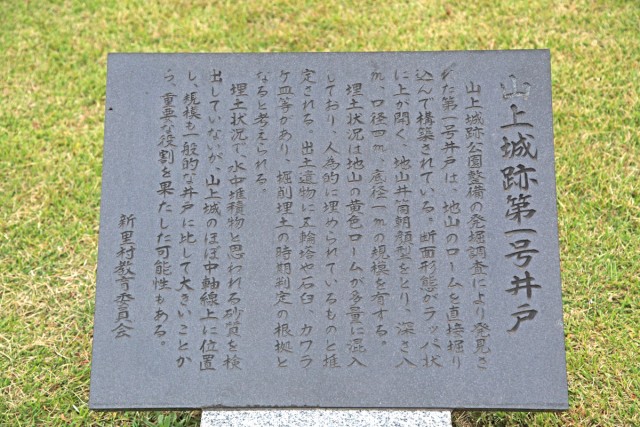 山上城跡第一号井戸
山上城跡公園整備の発掘調査により発見さ
れた第一号井戸は、地山のロームを直接掘り
込んで構築されている。断面形態がラッパ状
に上が開く、地山井筒朝顔型をとり、深さ八
m、口径四m、底径一mの規模を有する。
埋土状況は地山の黄色ロームが多量に混入
しており、人為的に埋められているものと推
定される。出土遺物に五輪塔や石臼、カワラ
ケ皿等があり、掘削埋土の時期判定の根拠と
なると考えられる。
埋土状況で、水中堆積物と思われる砂質を検
出していないが、山上城のほぼ中軸線上に位置
し、規模も一般的な井戸に比して大きいことか
ら、重要な役割を果たした可能性もある。
新里村教育委員会